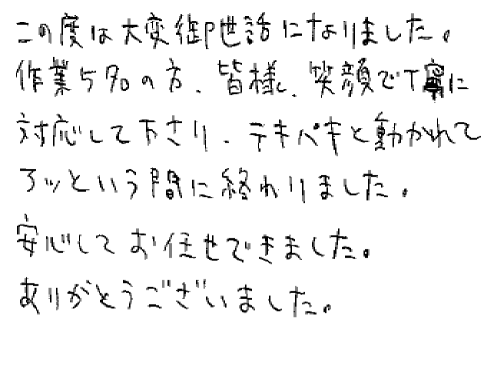 この度は大変御世話になりました。
作業スタッフの方、皆様、笑顔で丁寧に
対応して下さり、テキパキと動かれて
アッという間に終わりました。
安心してお任せできました。
ありがとうございました。